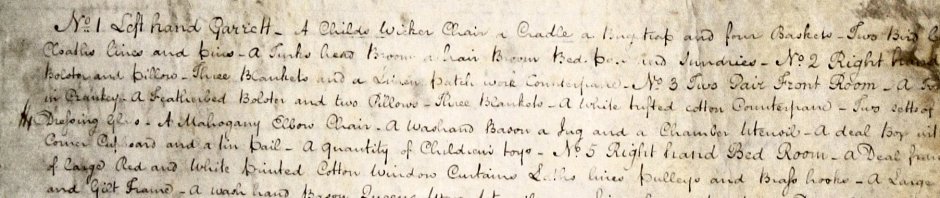 No. 1 Left hand Garrett - A Childs Wicker Chair a Cradle a Bug trap and four Baskets - Two Bird
Cloaths lines and pins - A Turks head Broom a hair Broom Bed pan and Sundries - No. 2 Right hand
Bolster and Pillow - Three Blankets and a Linen patch work Counterpane - No. 3 Two Pair Front Room - A
in Crankey - A Featherbed Bolster and two Pillows - Three Blankets - A White tufted cotton Counterpane - Two setts of
Dressing Glass - A Mahogany Elbow Chair - A Washand Bason a Jug and a Chamber Utensil - A deal Box
Corner Cupboard and a tin pail - A quantity of Childrens toys - No. 5 Right hand Bed Room - A Deal
of large Red and White printed Cotton Window Curtains Laths lines pulleys and Brass hooks - A Large
and Gilt Frame - A wash hand Bason